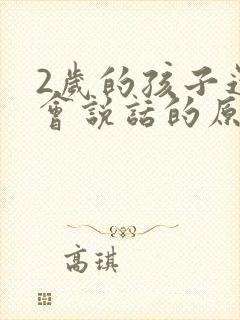 2歲的孩子
會說話的原
高琪